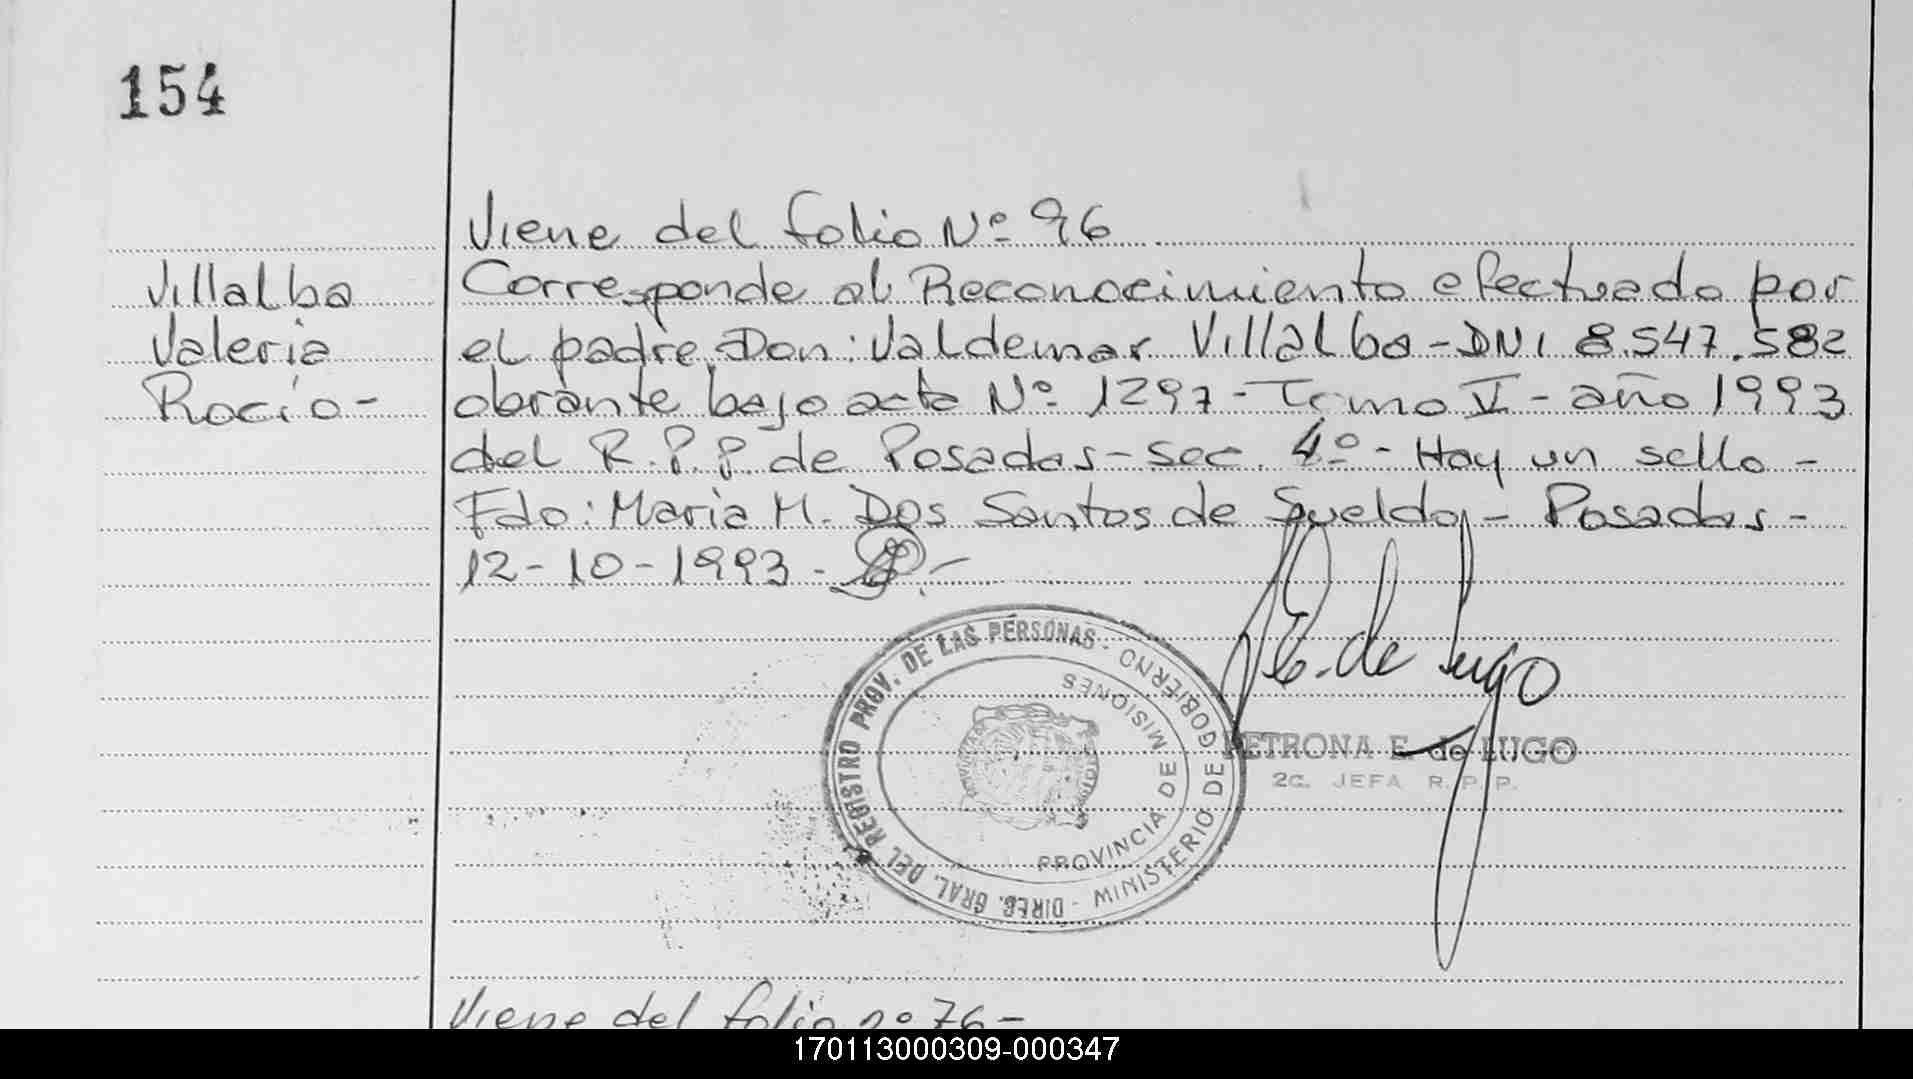 154
Viene del folio Nº 96
Villalba
Valeria
Rocío -
Corresponde al Reconocimiento efectuado por
el padre Don: Valdemar Villalba - DNI 8.547.582
obrante bajo acta Nº 1297 - Tomo V - año 1993
del R.P.P. de Posadas - Sec. 4º - Hay un sello -
Fdo: Maria M. Dos Santos de Sueldo - Posadas -
12-10-1993 -
DIREC. GRAL. DEL REGISTRO PROV. DE LAS PERSONAS -
MINISTERIO DE GOBIERNO
PROVINCIA DE MISIONES
E. de Lugo
PETRONA E. de LUGO
2G. JEFA R.P.P.
Viene del folio nº 76 -
170113000309-000347